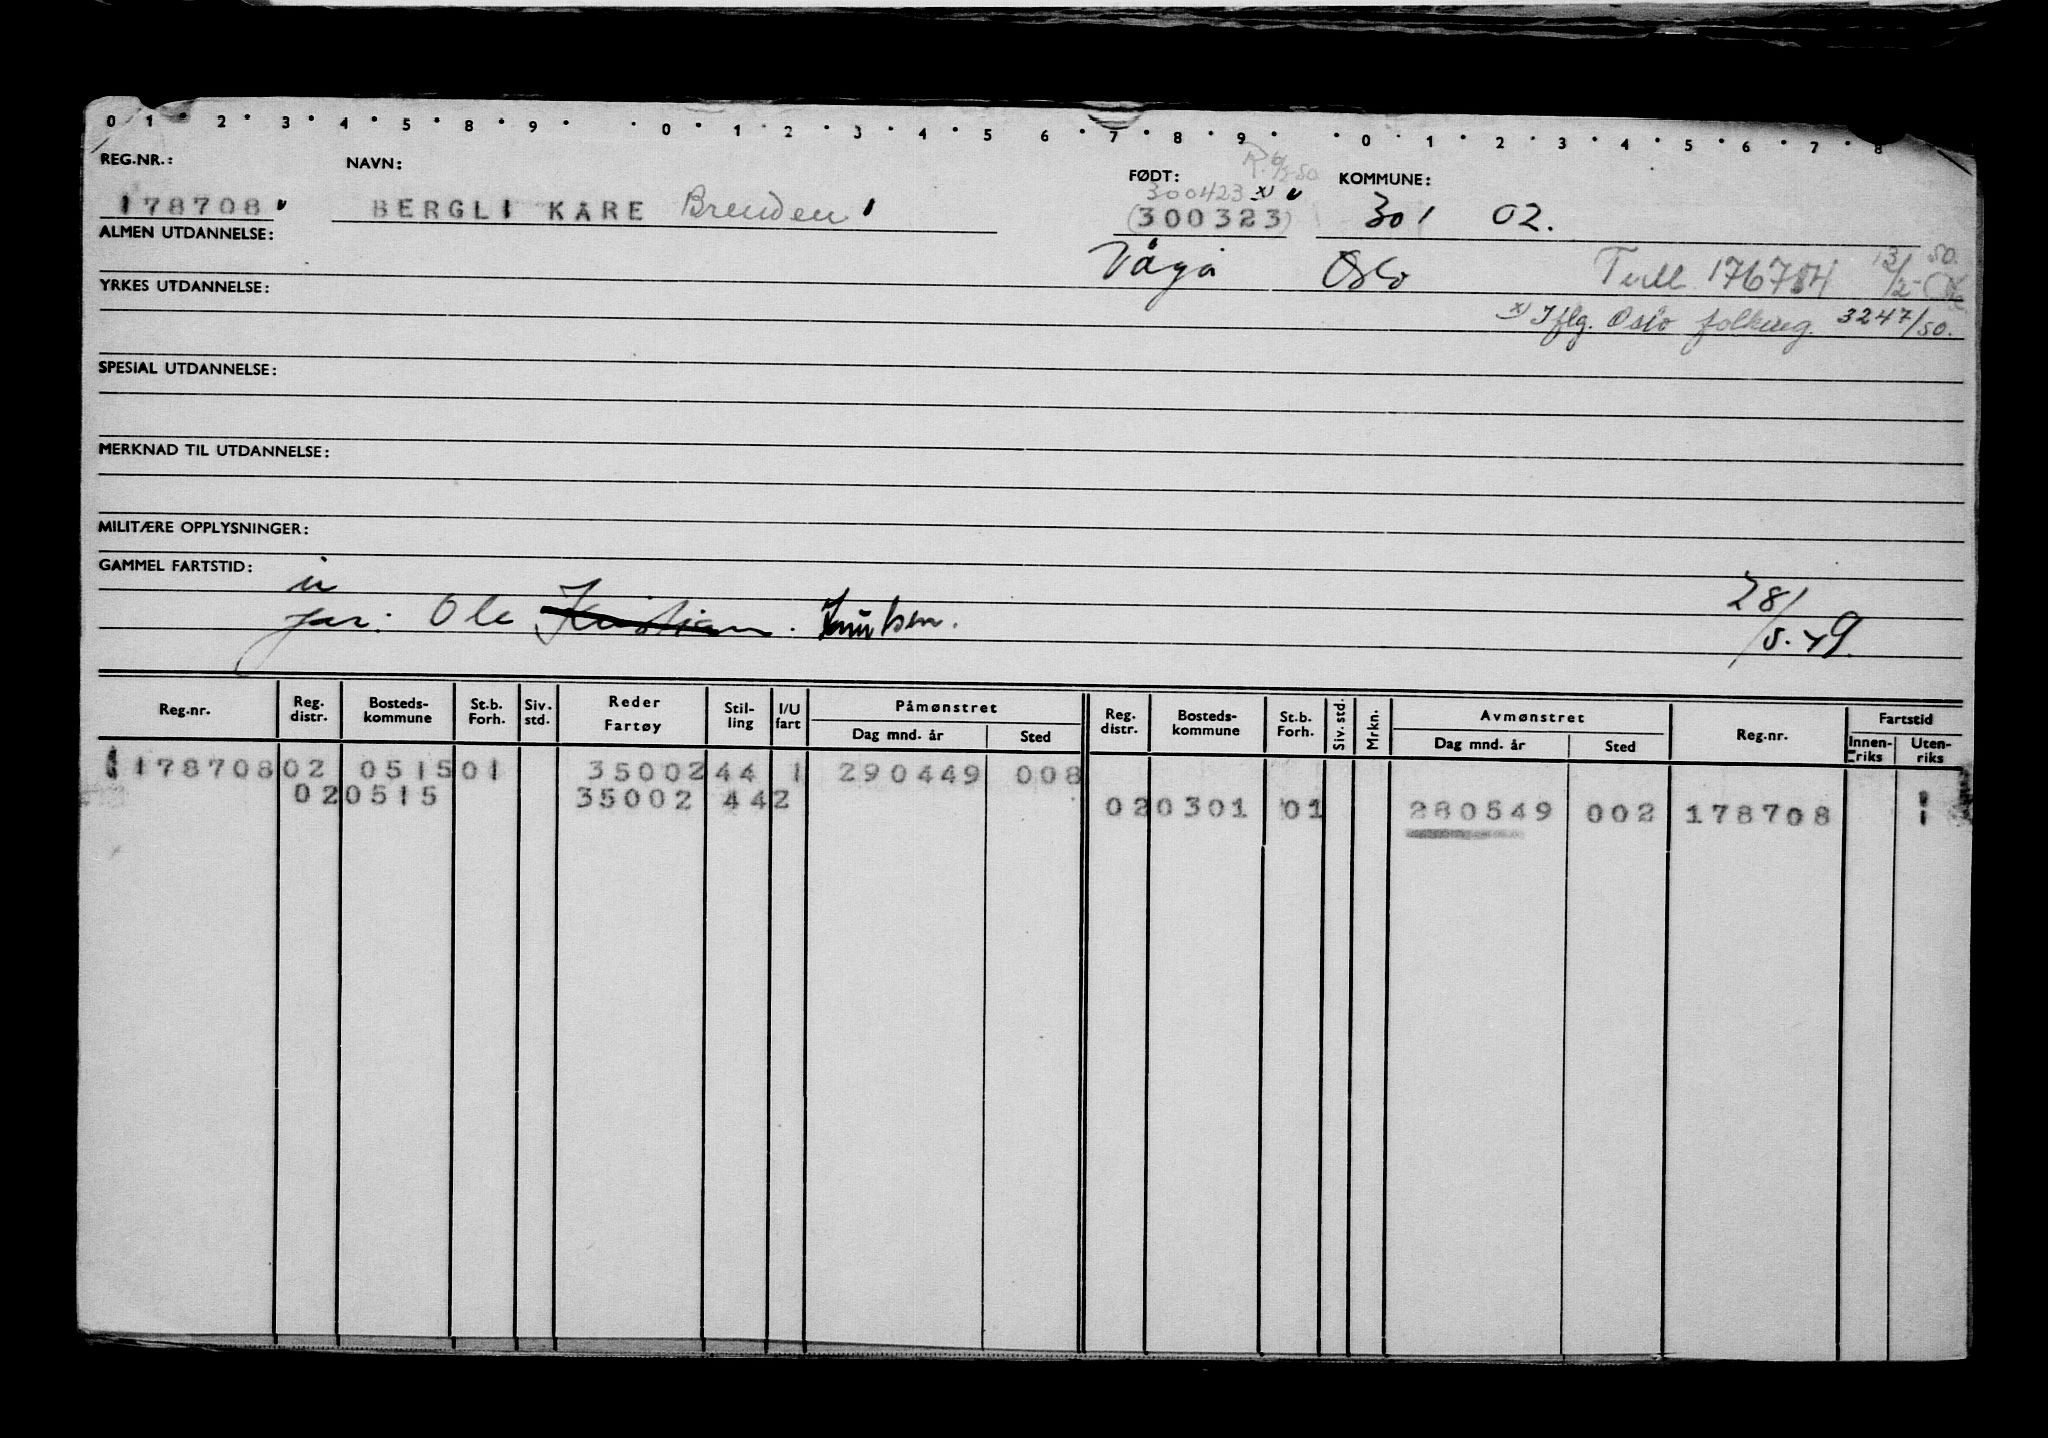 0 1 2 3 4 5 8 9 0 1 2 3 4 5 6 7 8 9 0 1 2 3 4 5 6 7 8
REG.NR.: NAVN: FØDT: KOMMUNE:
300423 x)
178708 BERGLI KARE Brenden (300323) 301 02.
ALMEN UTDANNELSE: Vågå Oslo 176784
YRKES UTDANNELSE: x) Iflg. Oslo folkereg. 3247/50.
SPESIAL UTDANNELSE:
MERKNAD TIL UTDANNELSE:
MILITÆRE OPPLYSNINGER:
GAMMEL FARTSTID:
far: Ole Kristian. Knutsen. 28/5-49.
Reg.nr. Reg. distr. Bosteds-kommune St.b. Forh. Siv. std. Reder Fartøy Stil-ling I/U fart Påmønstret Dag mnd. år Sted Reg. distr. Bosteds-kommune St.b. Forh. Siv. std. Mrkn. Avmønstret Dag mnd. år Sted Reg.nr. Fartstid Innen-riks Uten-riks
178708 02 0515 01 35002 44 1 290449 008
02 0515 35002 44 2 02 0301 01 280549 002 178708 1